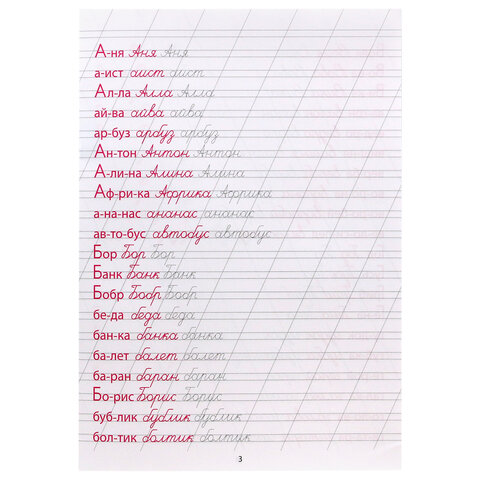 А-ня Аня Аня
а-ист аист аист
Ал-ла Алла Алла
ай-ва айва айва
ар-буз арбуз арбуз
Ан-тон Антон Антон
А-ли-на Алина Алина
Аф-ри-ка Африка Африка
а-на-нас ананас ананас
ав-то-бус автобус автобус
Бор Бор Бор
Банк Банк Банк
Бобр Бобр Бобр
бе-да беда беда
бан-ка банка банка
ба-лет балет балет
ба-ран баран баран
Бо-рис Борис Борис
буб-лик бублик бублик
бол-тик болтик болтик
3